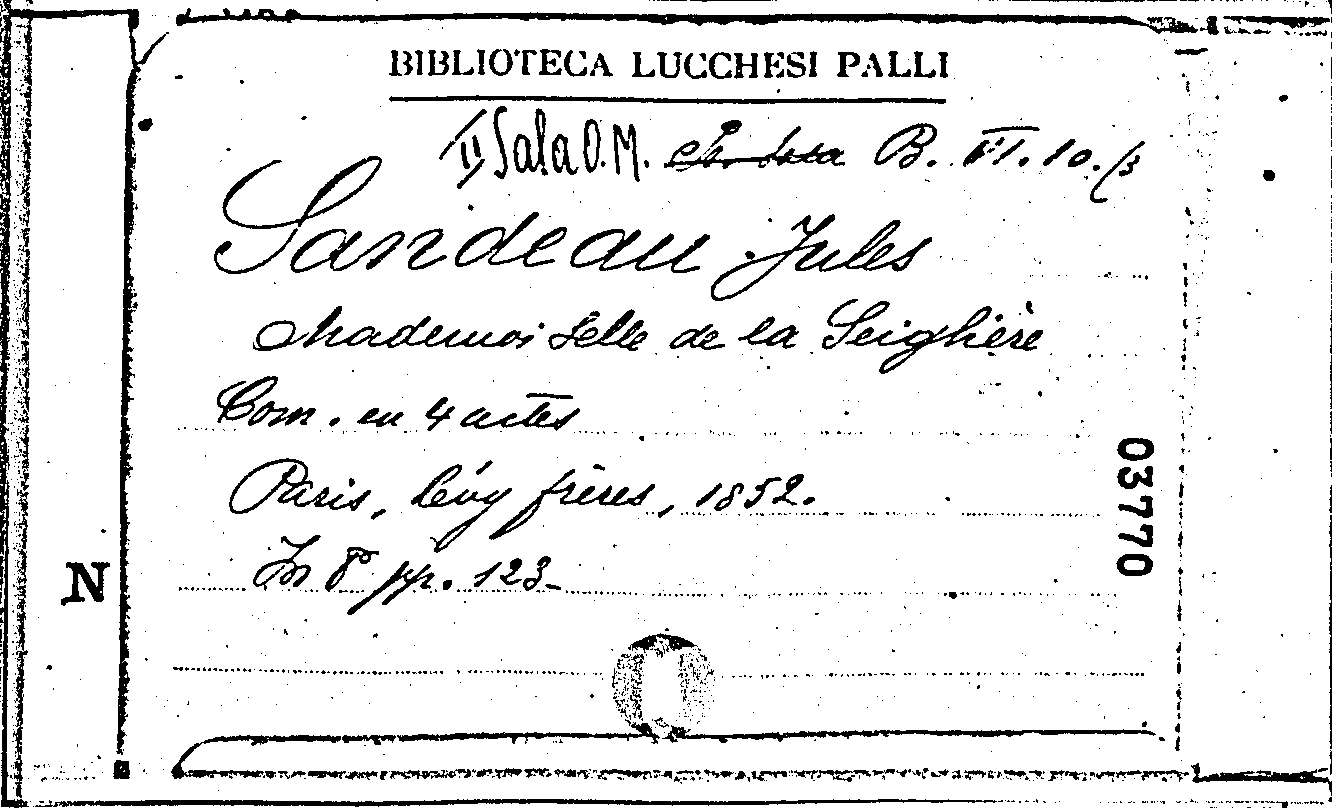 BIBLIOTECA LUCCHESI PALLI
II Sala O. M. B. VI. 10. /3
Sandeau Jules
Mademoiselle de la Seighère
Com. en 4 actes
Paris, Lévy frères, 1852.
In 8° pp. 123-
03770
N